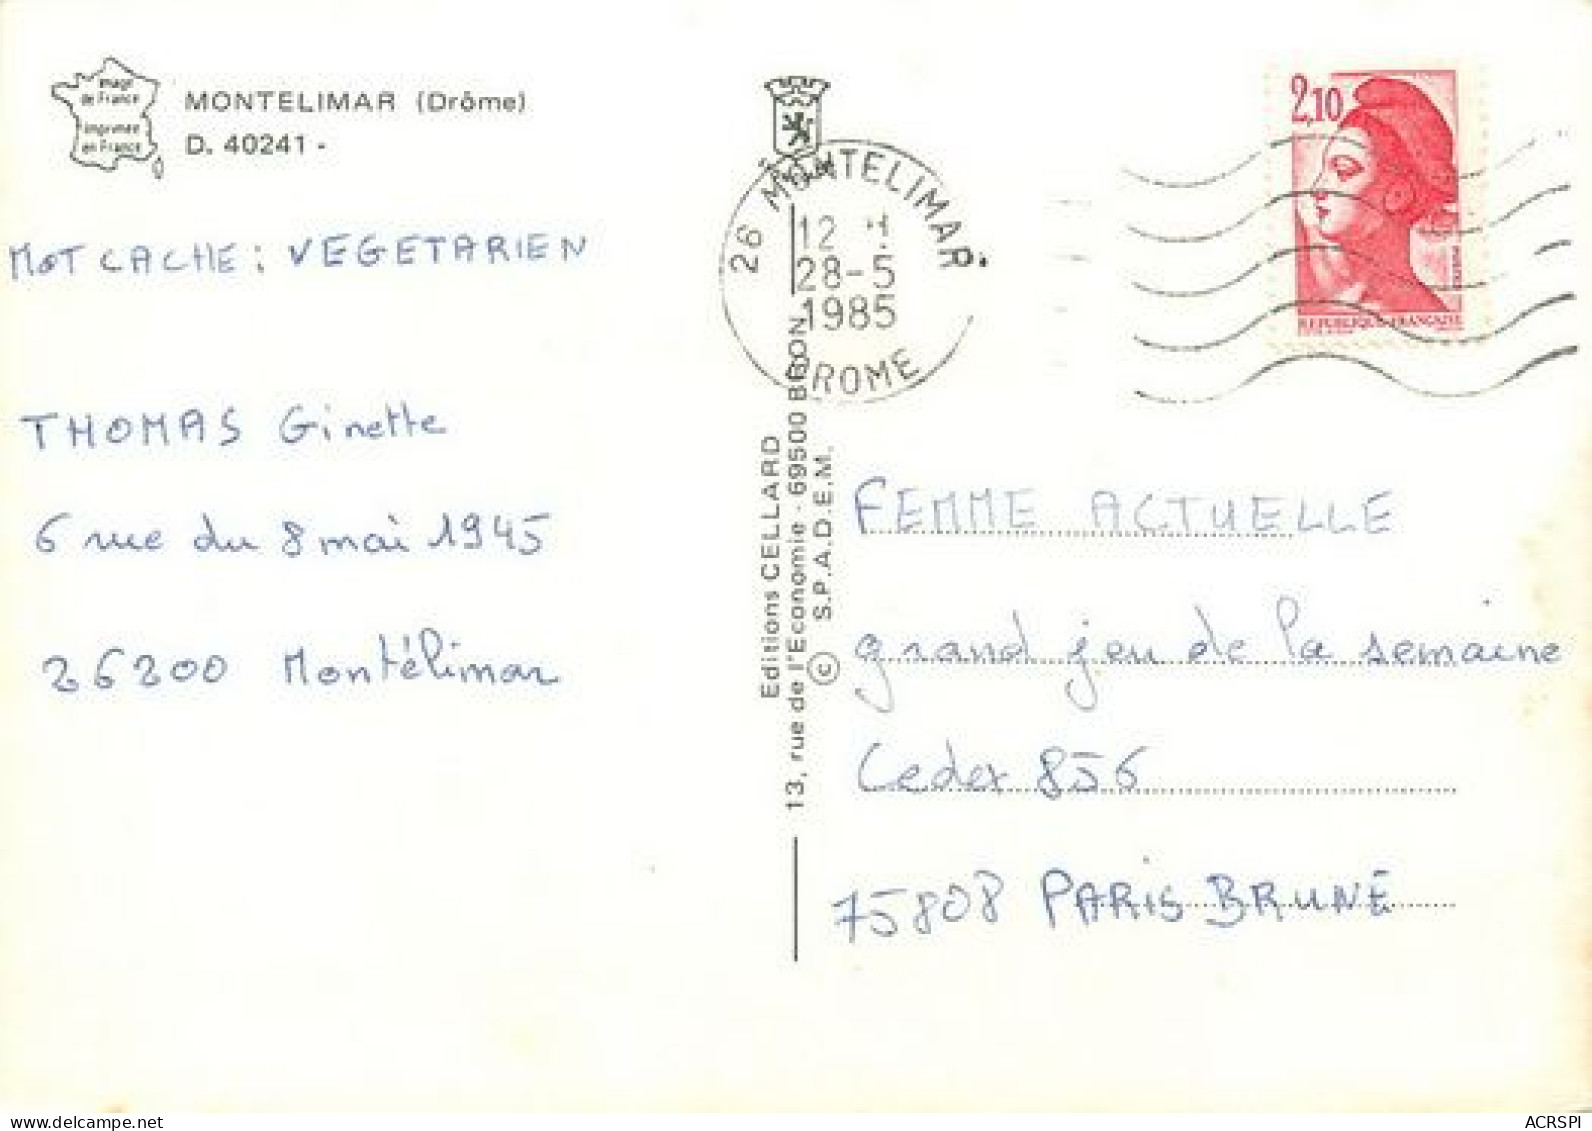 Image
de France
imprimée
en France
MONTELIMAR (Drôme)
D. 40241 -
MOT CACHE : VEGETARIEN
THOMAS Ginette
6 rue du 8 mai 1945
26200 Montélimar
26 MONTELIMAR
12 H
28-5
1985
DROME
Editions CELLARD
13, rue de l'Economie - 69500 BRON
© S.P.A.D.E.M.
2,10
REPUBLIQUE FRANÇAISE
FEMME ACTUELLE
grand jeu de la semaine
Cedex 856
75808 PARIS BRUNE
www.delcampe.net
ACRSPI